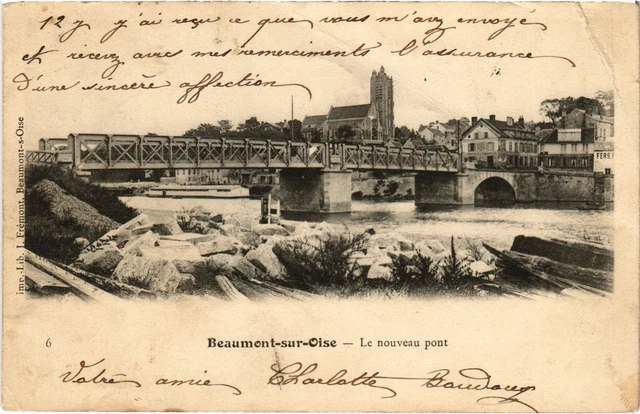 12 y y j'ai reçu ce que vous m'avez envoyé
et recevez avec mes remerciments l'assurance
d'une sincère affection
imp.-Lib. J. Frémont, Beaumont-s-Oise
FERS
6 Beaumont-sur-Oise — Le nouveau pont
Votre amie Charlotte